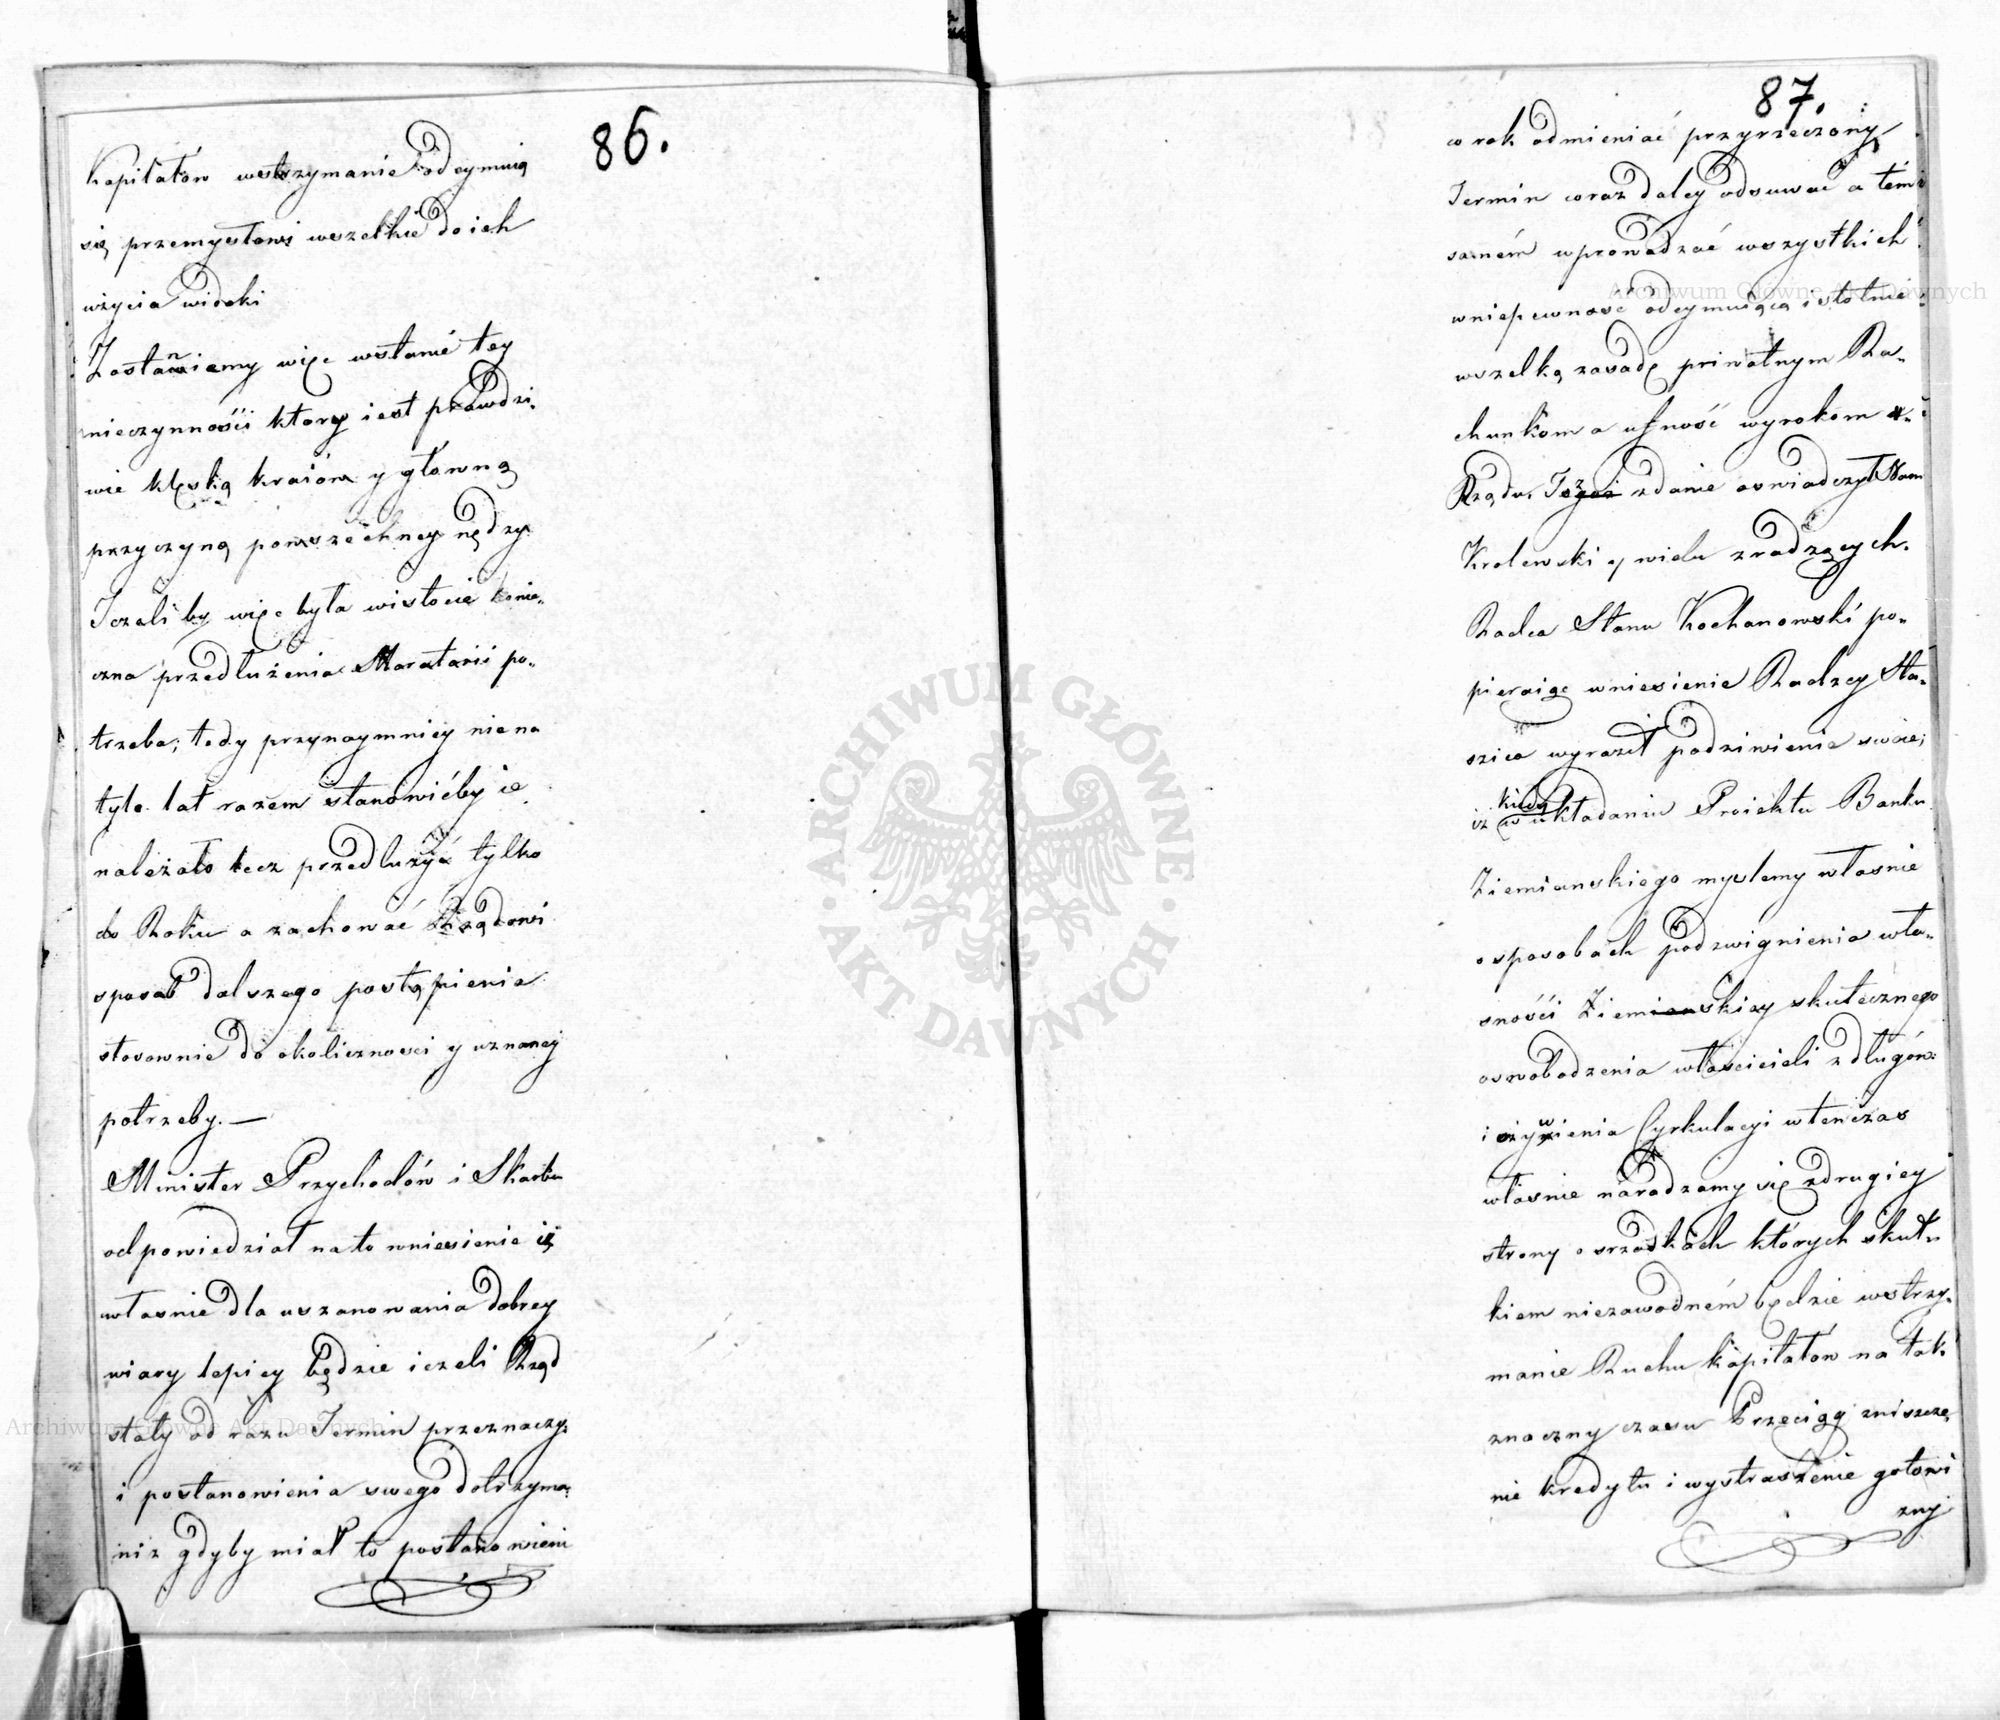 86.
Kapitałów wstrzymanie odeymuią
się przemysłowi wszelkie do ich
użycia widoki
Zostaniemy więc wstanie tey
nieczynności ktory iest prawdzi-
wie klęską kraiów y główną
przyczyną powszechney nędzy.
Jeżeli by więc była wistocie konie-
czna przedłużenia Moratorii po-
trzeba; tedy przynaymniey nie na
tyle lat razem stanowićby ie
należało lecz przedłużyć tylko
do Roku a zachować Rządowi
sposob dalszego postąpienia
stosownie do okoliczności y uznaney
potrzeby. —
Minister Przychodów i Skarbu
odpowiedział na to wniesienie iż
własnie dla uszanowania dobrey
wiary lepiey będzie ieżeli Rząd
stały od razu Termin przeznaczy
i postanowienia swego dotrzyma,
niż gdyby miał to postanowieni
87.
w rok odmieniać przyrzeczony
Termin coraz daley odsuwać a tém
samém wprowadzać wszystkich
wniepewność odeymuiącą istotnie
wszelką zasadę priwatnym Ra-
chunkom a ufność wyrokom
Rządu. Toż zdanie oswiadczył Nam
Krolewski y wielu zradzących.
Radca Stanu Kochanowski po-
pieraiąc wniesienie Radzcy Sta-
szica wyraził podziwienie swoie;
iż kiedy w układaniu Proiektu Banku
Ziemianskiego myslemy własnie
o sposobach podzwignienia wła-
sności Ziemskiey skutecznego
oswobodzenia właścicieli z długów
i ożywienia Cyrkulacyi wtenczas
własnie naradzamy się z drugiey
strony o srzodkach których skut-
kiem niezawodném będzie wstrzy-
manie Ruchu kapitałów na tak
znaczny czasu Przeciąg zniszcze
nie kredytu i wystraszenie gotowi
zny
Archiwum Główne Akt Dawnych
ARCHIWUM GŁÓWNE
AKT DAWNYCH
Archiwum Główne Akt Dawnych